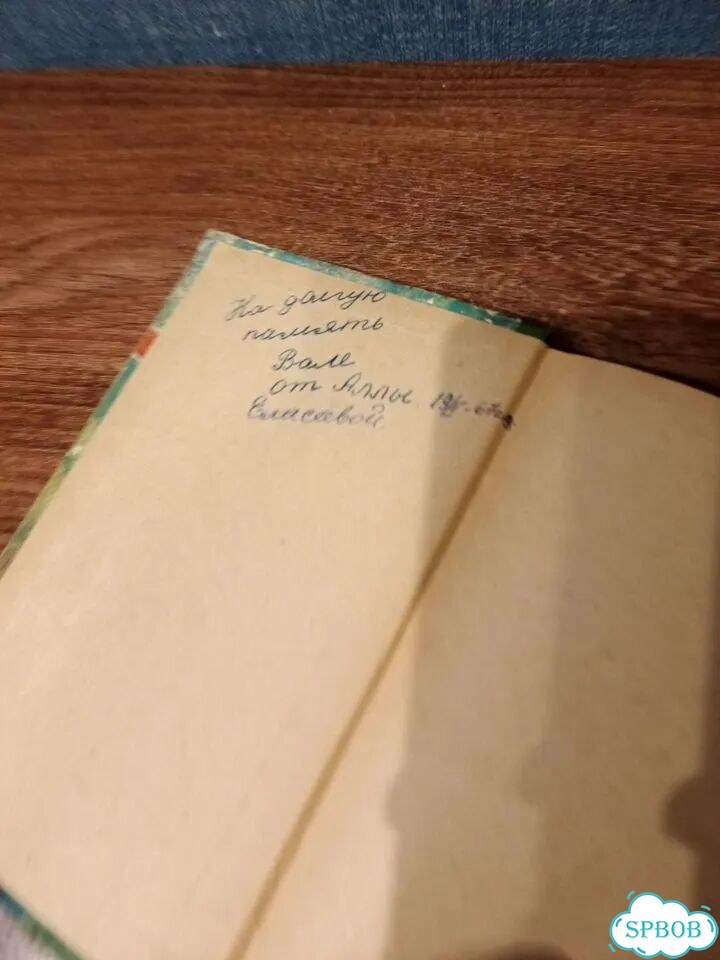 На долгую
память
Вале
от Аллы.
Елисеевой
SPBOB